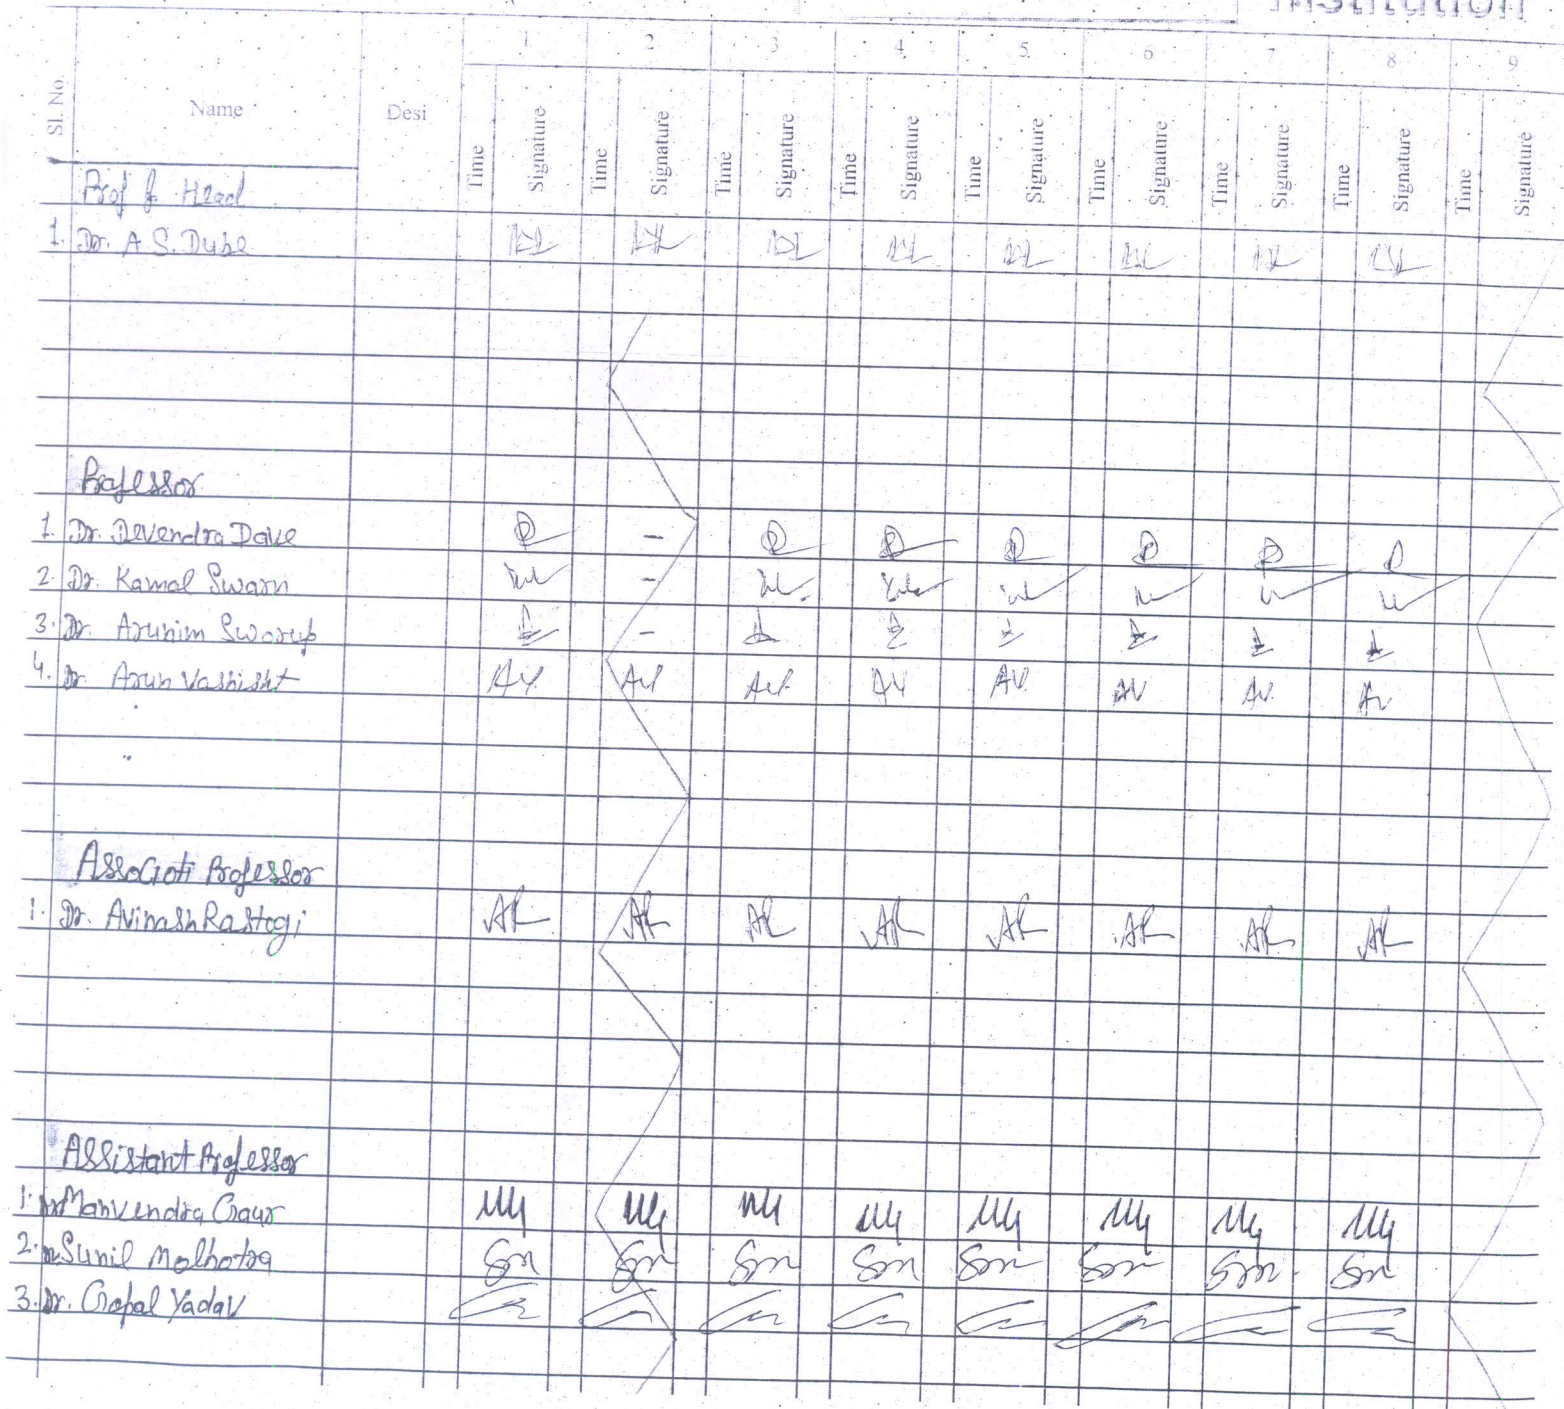 Institution
1 2 3 4 5 6 7 8 9
Sl. No. Name Desi Time Signature Time Signature Time Signature Time Signature Time Signature Time Signature Time Signature Time Signature Time Signature
Prof & Head
1. Dr. A.S. Dube
Professor
1. Dr. Devendra Dave - 
2. Dr. Kamal Swarn -
3. Dr. Arunim Swarup -
4. Dr. Arun Vashisht AV AV AV AV AV AV AV AV
Associoti Professor
1. Dr. Avinash Rastogi AR AR AR AR AR AR AR AR
Assistant Professor
1. Dr Manvendra Gaur
2. Dr Sunil Malhotra Sm Sm Sm Sm Sm Sm Sm Sm
3. Dr. Gopal Yadav